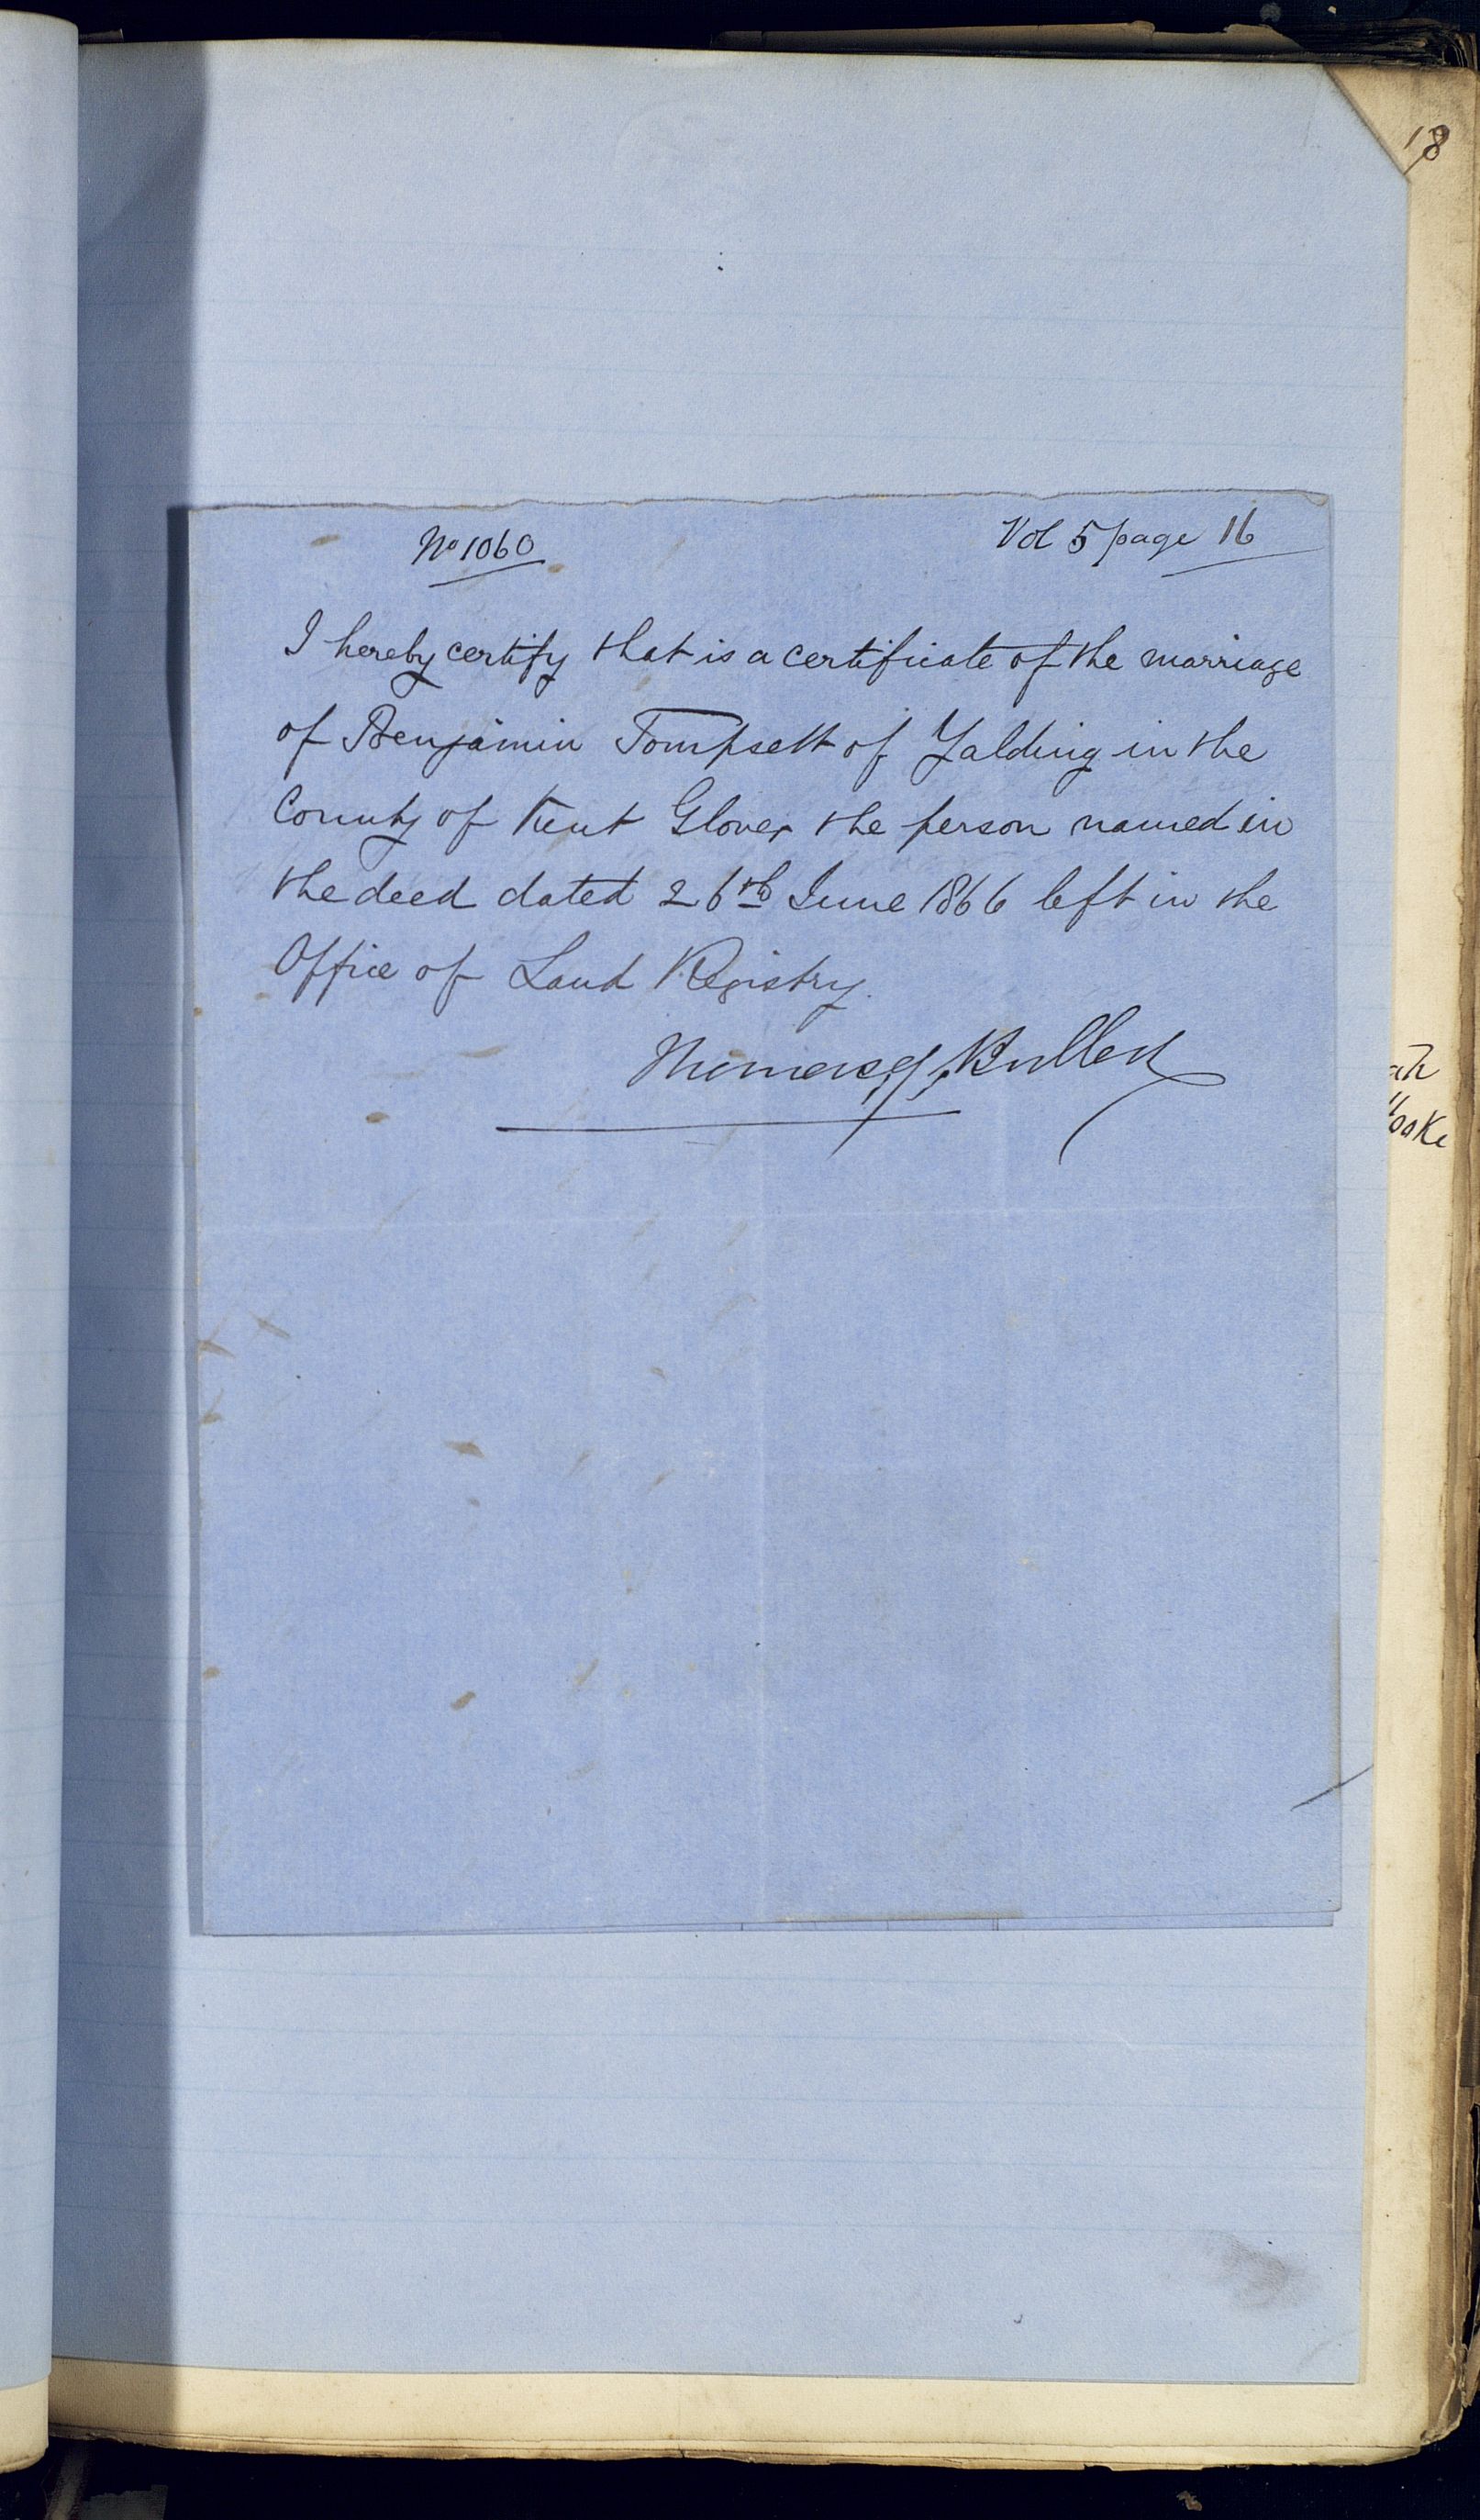 18
No 1060
Vol 5 page 16
I hereby certify that is a certificate of the marriage
of Benjamin Tompsett of Yalding in the
County of Kent Glover the person named in
the deed dated 26th June 1866 left in the
Office of Land Registry.